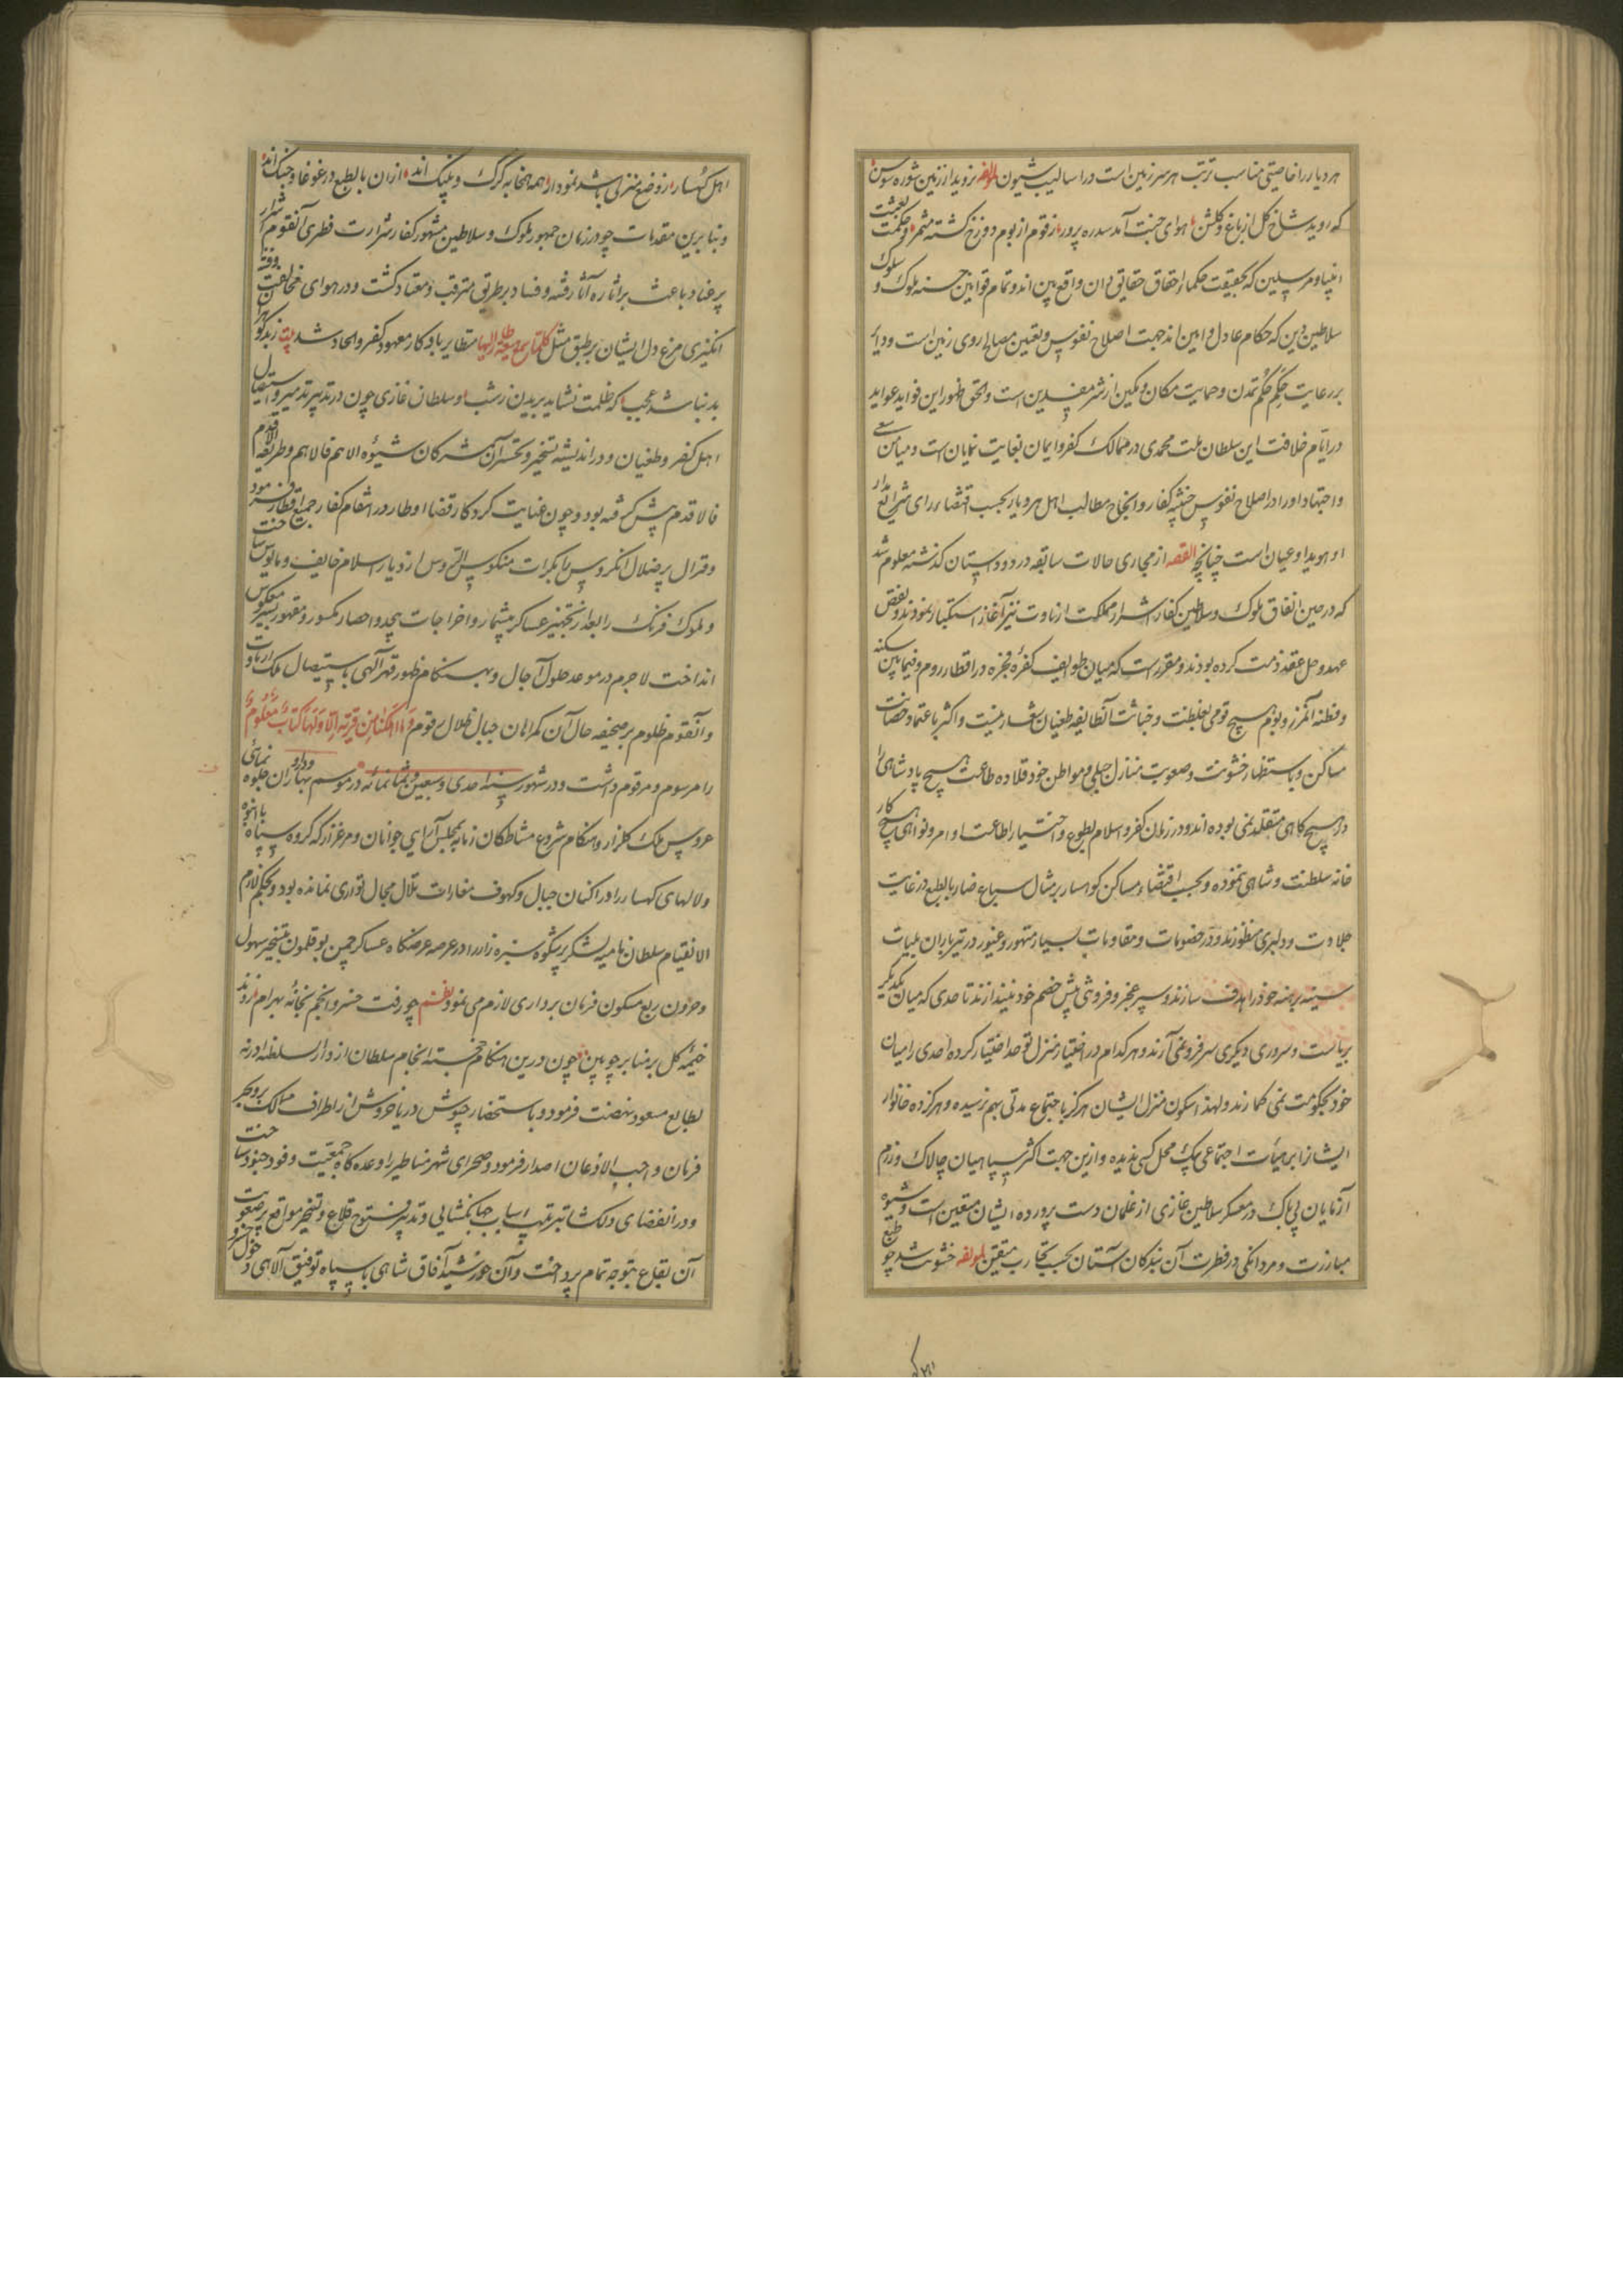 هر دیار را خاصیتی مناسب تربت هر سرزمین است در اسالیب شیون لمولفه نروید از زمین شوره سوسن
که روید شاخ گل از باغ و گلشن هوای جنت آمد سدره پرور ز زقوم از بوم دوزخ گشته مثمر و حکمت بعثت
انبیا و مرسلین که بحقیقت حکماء احقاق حقایق دان واقع بین اند و تمام قوانین حسنه ملوک و سلوک
سلاطین دین که حکام عادل و امین اند جهت اصلاح نفوس و تعیین مصالح روی زمین است و دایر
بر رعایت حکم حکم تمدن و حمایت مکان و مکین از شر مفسدین است والحق ظهور این فواید عواید
در ایام خلافت این سلطان ملت محمدی در ممالک کفر و ایمان بغایت نمایان است و میامن سعی
و اجتهاد او را در اصلاح نفوس خبیثه کفار و انجاح مطالب اهل هر دیار بحسب اقتضاء رای شرایع
او هویدا و عیان است چنانچه القصه از مجاری حالات سابقه در دو داستان گذشته معلوم شد
که در حین اتفاق ملوک و سلاطین کفار اشرار مملکت ارناوت نیز آغاز استکبار نمودند و نقض
عهد و حل عقد ذمت کرده بودند و مقرر است که میان طوایف کفره فجره در اقطار روم و فیما بین سکنه
و قطنه آن مرز و بوم هیچ قومی بغلظت و خباثت آن طایفه طغیان شعار نیست و اکثر باعتماد حصانت
مساکن و باستظهار خشونت و صعوبت منازل جبلی و مواطن خود قلاده طاعت هیچ پادشاهی را
در هیچ گاهی متقلد نمی بوده اند و در زمان کفر و اسلام بطوع و اختیار اطاعت اوامر و نواهی هیچ کار
خانه سلطنت و شاهی ننموده و بحسب اقتضاء مساکن کوهسار بر مثال سباع ضار بالطبع در غایت
جلادت و دلیری مفطورند و در خصومات و مقاومات بسیار متهور و غیور در تیرباران بلیات
سینه برهنه خود را هدف سازند و سپر عجز و فروتنی پیش خصم خود نیندازند تا حدی که میان یکدیگر
بریاست و سروری دیگری سر فرو نمی آرند و هر کدام در اختیار منزل توحد اختیار کرده احدی را میان
خود بحکومت نمی گمارند و لهذا سکون منزل ایشان هرگز باجتماع مدتی بهم نرسیده و هرگز ده خانوار
ایشان را بر هیأت اجتماعی یک محل کسی ندیده و ازین جهت اکثر سپاهیان چالاک و رزم
آزمایان بی باک در معسکر سلاطین غازی از غلمان دست پرورده ایشان متعین است و شیوه
مبارزت و مردانگی در فطرت آن بندگان آستان بحسب تجارب متیقن لمولفه خشونت شد چو طبع
اهل کهسار ز وضع منزلی باشد نمودار همه همخابه گرگ و پلنگ اند از ان بالطبع در غوغا و جنگ اند
و بنا برین مقدمات چو در زمان جمهور ملوک و سلاطین مشهور کفار شرارت فطری آن قوم اشرار
پر عناد باعث بر اثاره آثار فتنه و فساد بر طریق مترقب و معتاد گشت و در هوای مخالفت فتنه
انگیزی مرغ دل ایشان بر طبق مثل کلما سمع هیعة طار الیها متطایر باوکار معهود کفر و الحاد شد بیت ز بدگوهر
بد نباشد عجب که ظلمت نشاید بریدن ز شب و سلطان غازی چون در تدبیر تدمیر و استیصال
اهل کفر و طغیان و در اندیشه تسخیر و تخسر آن مشرکان شیوه الاهم فالاهم و طریقه الاقدم
فالاقدم پیش گرفته بود و چون عنایت کردکار قضا اوطار در انتقام کفار جمیع اقطار فرمود
و قرال پر ضلال انکروس را بکرات منکوس الرؤس از دیار اسلام خایف و مایوس ساخت
و ملوک فرنک را بعد از تجهیز عساکر بیشمار و اخراجات بیحد و احصار مکسور و مقهور بسیر معکوس
انداخت لاجرم در موعد حلول آجال و بهنگام ظهور قهر الهی باستیصال ملک ارناوت
و آن قوم ظلوم بر صحیفه حال آن گمراهان جبال ضلال رقوم وما اهلکنا من قریة الا ولها کتاب معلوم
را مرسوم و مرقوم داشت و در شهور سنه احدی و سبعین و ثمانمائه در موسم بهاران جلوه نمائی
عروس ملک گلزار و هنگام شروع مشاطگان زمانه بمجلس آرایی جوانان و مرغزار که گروه سپاه بانبوه
و لالهای کهسار را در اکنان جبال و کهوف مغارات تلال مجال تواری نمانده بود و بحکم لازم
الانقیام سلطان نامیه لشکر پرشکوه سبزه زار را در عرصه عرضگاه عساکر چمن بوقلمون بتسخیر سهول
و حزون ربع مسکون فرمان برداری لازم می نمود نظم چو رفت خسرو انجم بخانه بهرام زدند
خیمه گل بر منابر چوبین چون درین هنگام خجسته انجام سلطان از دار السلطنه ادرنه
بطالع مسعود نهضت فرمود و باستحضار جیوش دریا خروش از اطراف مسالک بر و بحر
فرمان واجب الاذعان اصدار فرمود و صحرای شهر مناطیر را وعده گاه جمعیت وفود جنود ساخت
و در انقضای دلکشا تبرتیب اسباب جهانگشایی و تدبیر فتوح قلاع و تسخیر مواقع پر صعوبت
آن بقاع بتوجه تمام پرداخت و آن خورشید آفاق شاهی با سپاه توفیق الاهی